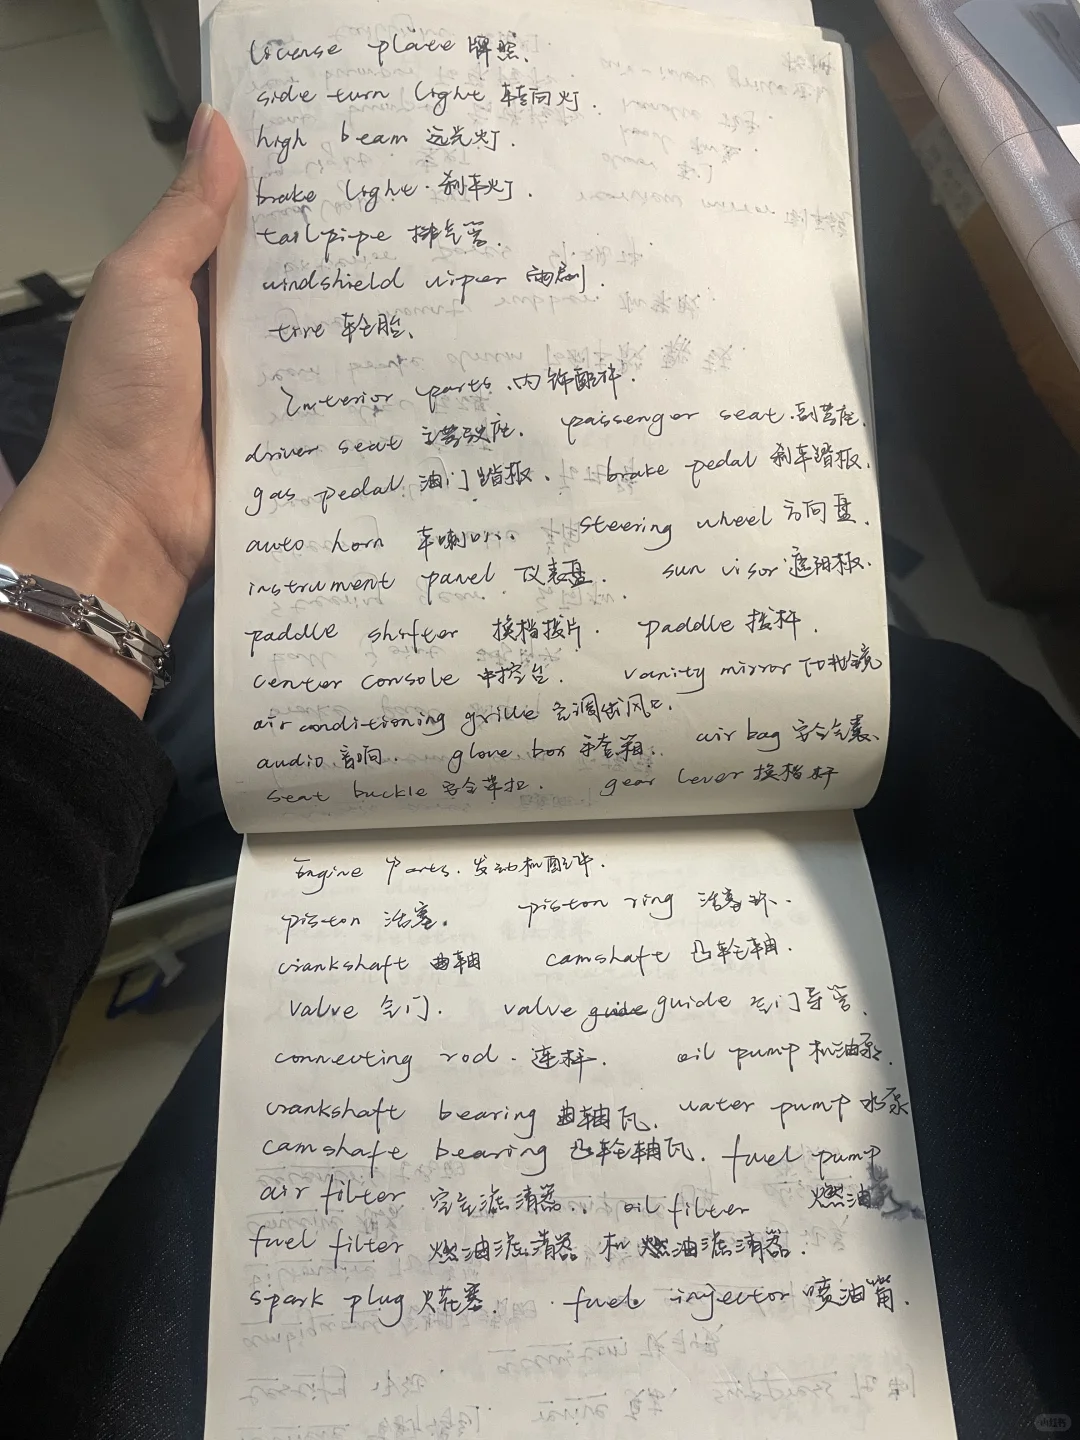 license plate 牌照.
side turn light 转向灯.
high beam 远光灯.
brake light. 刹车灯.
tailpipe 排气管.
windshield wiper 雨刷.
tire 轮胎.
Interior parts. 内饰配件.
driver seat 主驾驶座. passenger seat. 副驾座.
gas pedal 油门踏板. brake pedal 刹车踏板.
auto horn 车喇叭. steering wheel 方向盘.
instrument panel 仪表盘. sun visor 遮阳板.
paddle shifter 换档拨片. paddle 拨杆.
center console 中控台. vanity mirror 化妆镜
air conditioning grille 空调出风口.
audio 音响. glove box 手套箱. air bag 安全气囊.
seat buckle 安全带扣. gear lever 换档杆
Engine Parts. 发动机配件.
piston 活塞. piston ring 活塞环.
crankshaft 曲轴 camshaft 凸轮轴.
valve 气门. valve guide 气门导管.
connecting rod. 连杆. oil pump 机油泵.
crankshaft bearing 曲轴瓦. water pump 水泵
camshaft bearing 凸轮轴瓦. fuel pump
air filter 空气滤清器.. oil filter 燃油
fuel filter 燃油滤清器 机油滤清器.
spark plug 火花塞. fuel injector 喷油嘴.